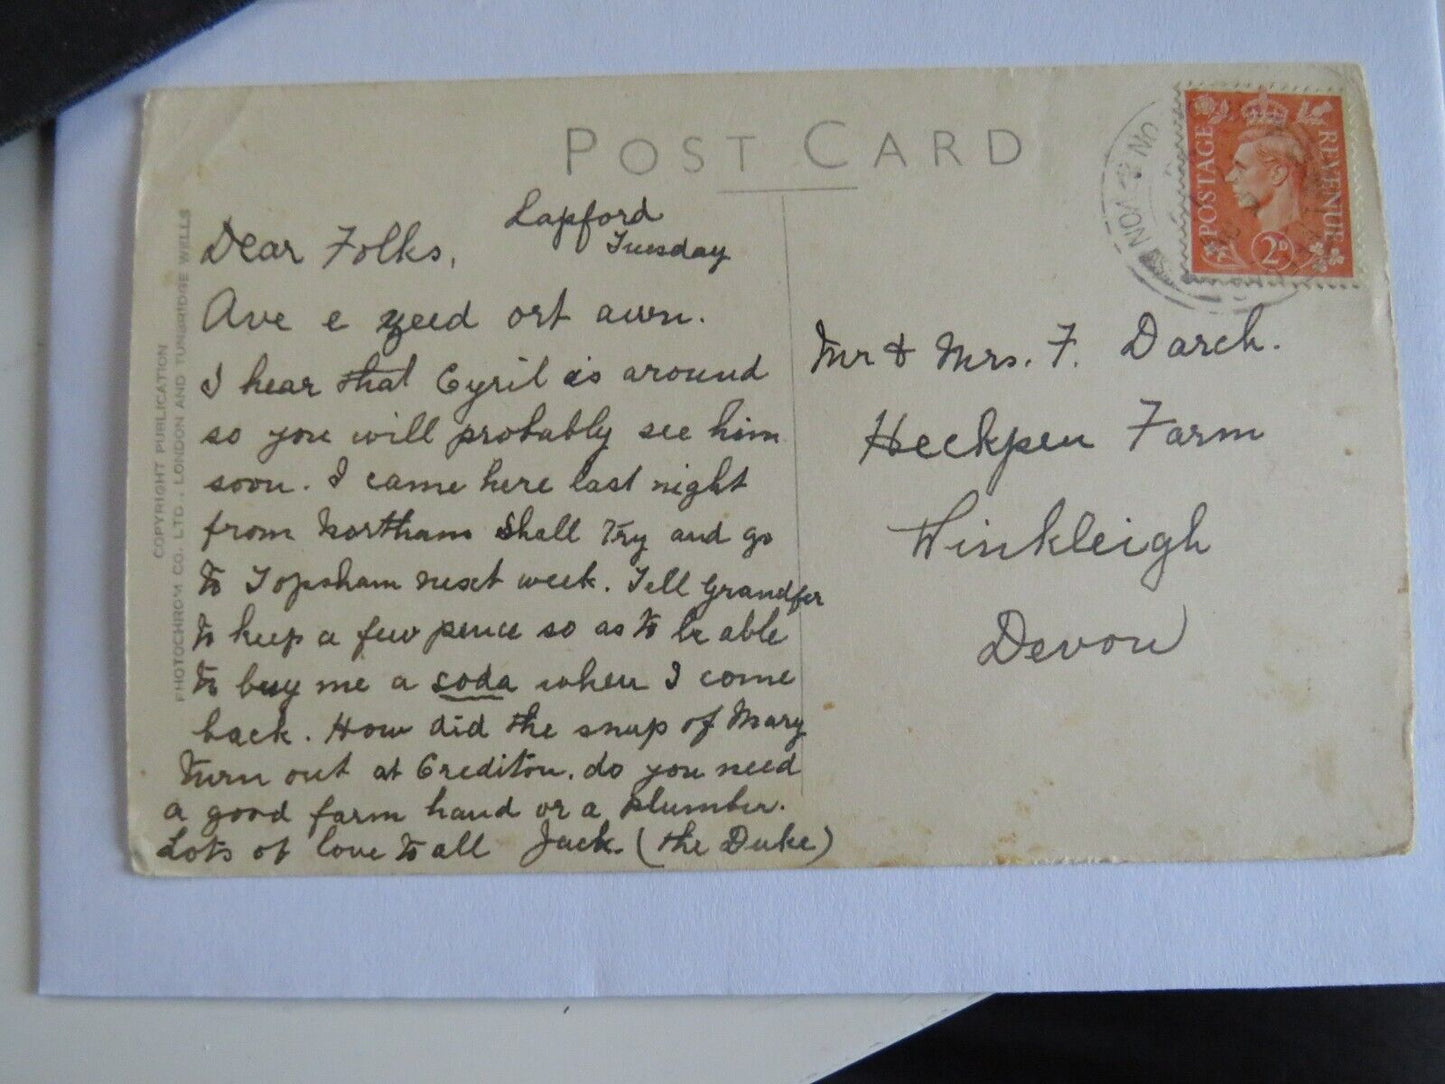 POST CARD
Lapford
Tuesday
Dear Folks,
Ave e zeed ort awn.
I hear that Cyril is around
so you will probably see him
soon. I came here last night
from Northam Shall try and go
to Topsham next week. Tell Grandfer
to keep a few pence so as to be able
to buy me a soda when I come
back. How did the snap of Mary
turn out at Crediton. do you need
a good farm hand or a plumber.
Lots of love to all Jack. (the Duke)
Mr & Mrs. F. Darch.
Heckpen Farm
Winkleigh
Devon
POSTAGE
REVENUE
2D
DEVON
COPYRIGHT PUBLICATION
PHOTOCHROM CO. LTD., LONDON AND TUNBRIDGE WELLS